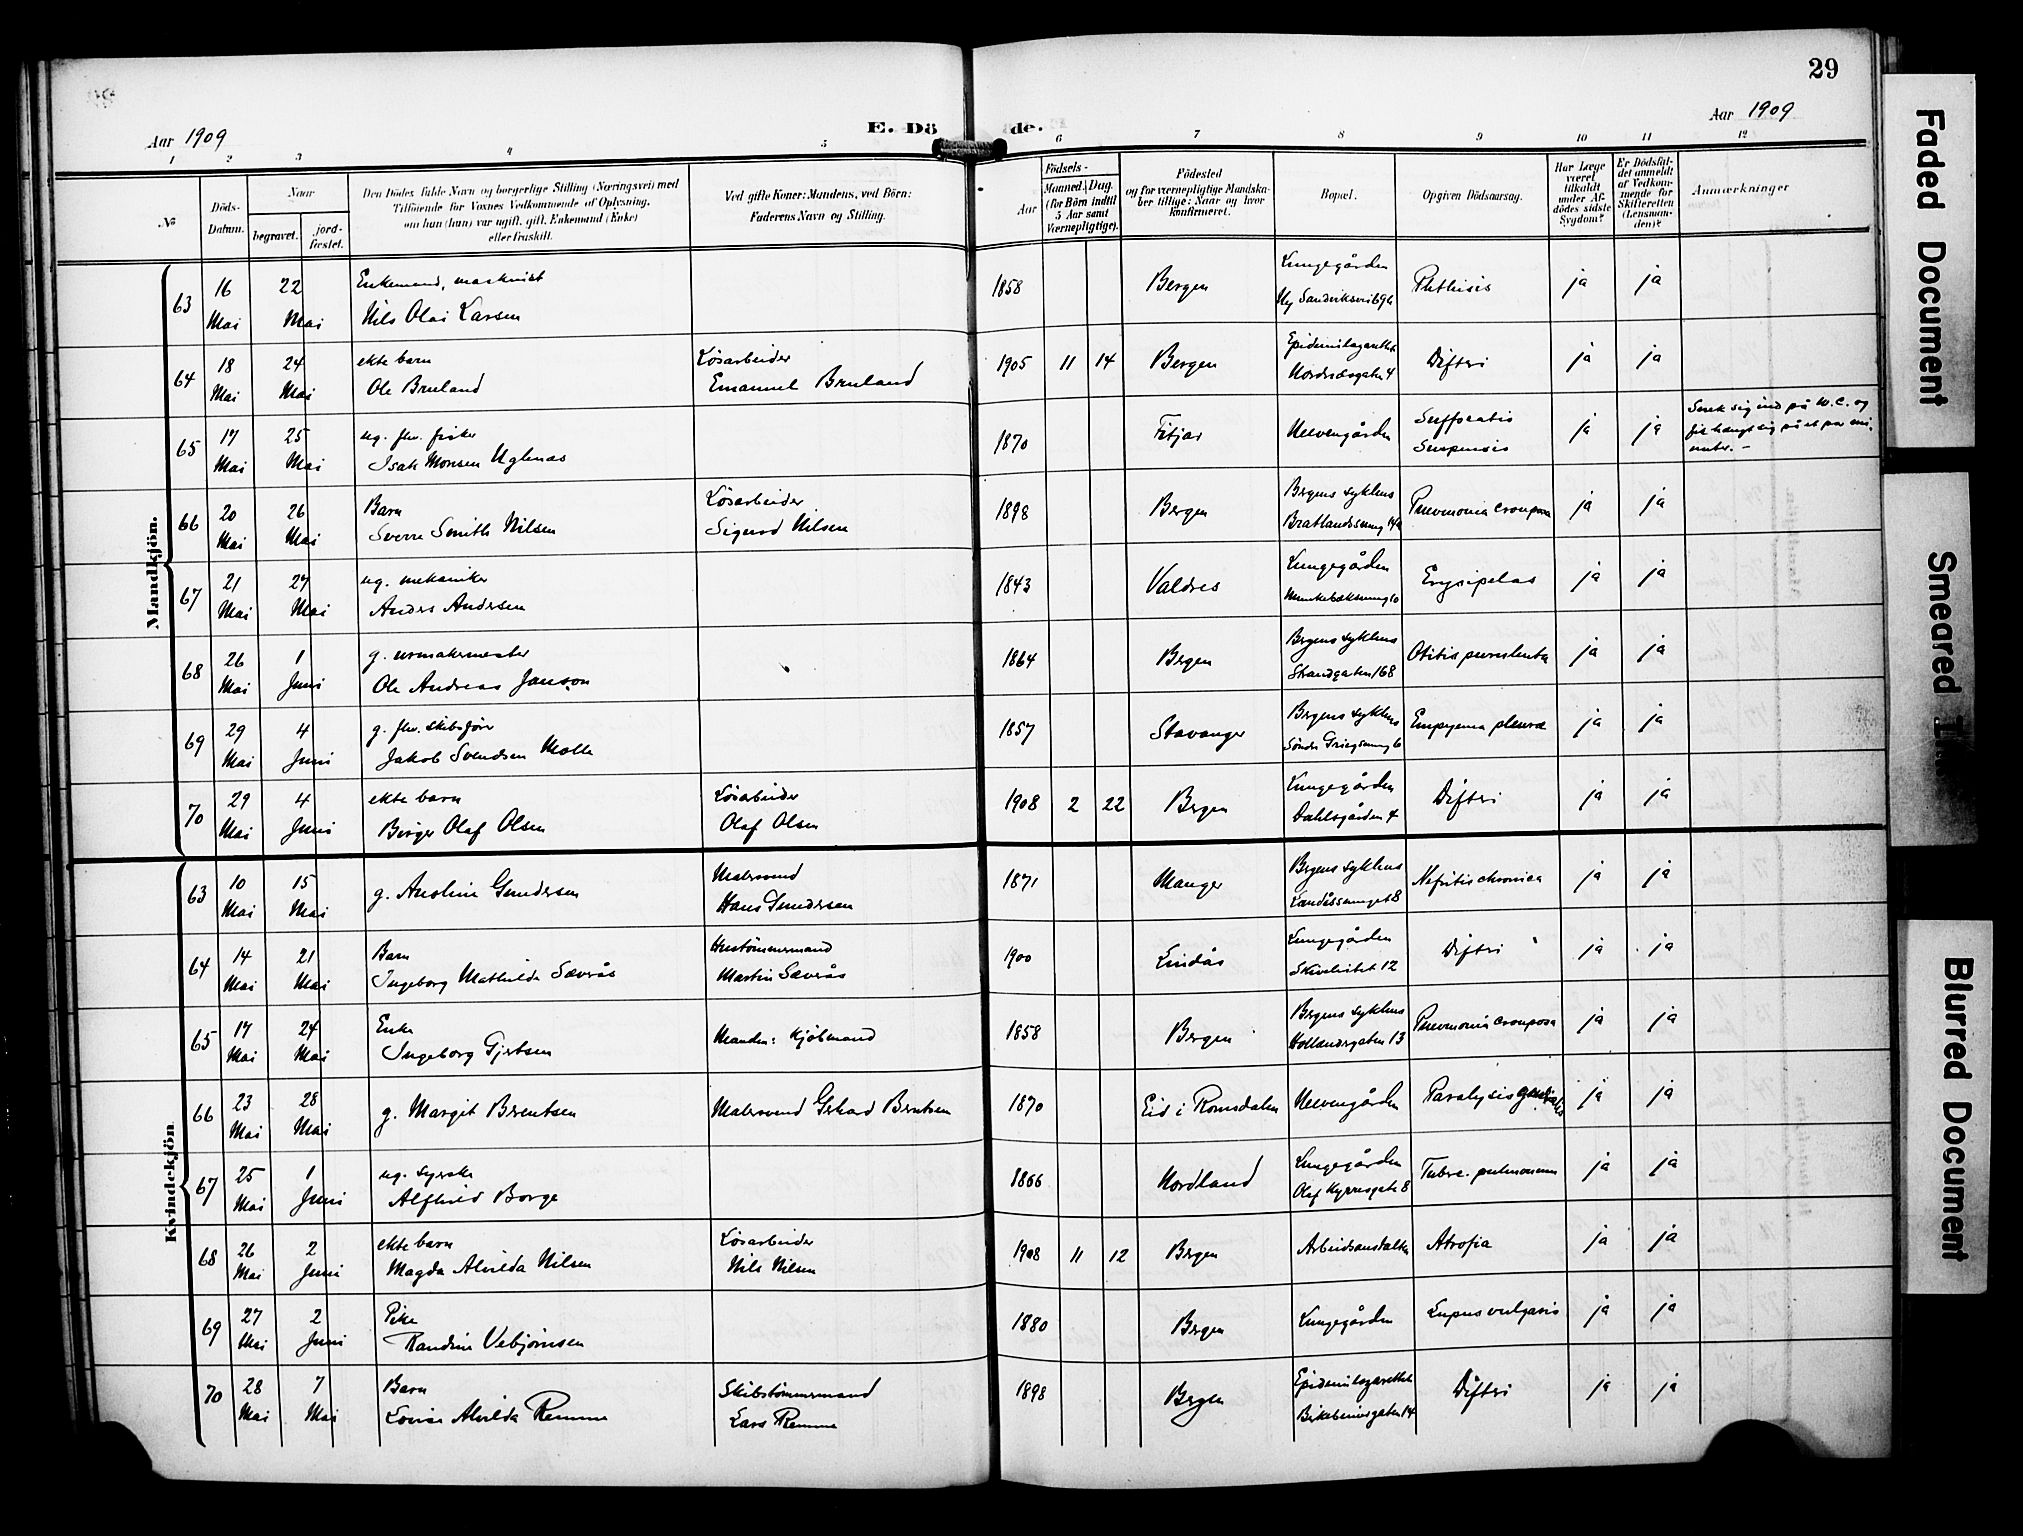 29
Aar 1909
E. Döde.
Aar 1909
1 2 3 4 5 6 7 8 9 10 11 12
№
Döds-Datum.
Naar
begravet.
jord-fæstet.
Den Dödes fulde Navn og borgerlige Stilling (Næringsvei) med
Tilföiende for Voxnes Vedkommende af Oplysning,
om han (hun) var ugift, gift, Enkemand (Enke)
eller fraskilt.
Ved gifte Koner: Mandens, ved Börn:
Faderens Navn og Stilling.
Aar
Födsels-
Maaned. Dag.
(for Börn indtil
5 Aar samt
Værnepligtige).
Födested
og for værnepligtige Mandska-
ber tillige: Naar og hvor
konfirmeret.
Bopæl.
Opgiven Dödsaarsag.
Har Læge
været
tilkaldt
under Af-
dödes sidste
Sygdom?
Er Dödsfal-
det anmeldt
af Vedkom-
mende for
Skifteretten
(Lensman-
den)?
Anmærkninger
Mandkjön.
63 16 Mai 22 Mai Enkemand, maskinist
Nils Olai Larsen 1858 Bergen Lungegården
Ny Sandviksvei 69b Phthisis ja ja
64 18 Mai 24 Mai ekte barn
Ole Bruland Løsarbeider
Emanuel Bruland 1905 11 14 Bergen Epidemilasarettet
Nordnæsgaten 4 Difteri ja ja
65 17 Mai 25 Mai ug. fhv. fisker
Isak Monsen Uglenæs 1870 Fitjar Neevengården Suffocatio
Suspensio ja ja Snek sig ind på W.C. og
fik hængt sig på et par mi-
nuter. -
66 20 Mai 26 Mai Barn
Sverre Smith Nilsen Løsarbeider
Sigurd Nilsen 1898 Bergen Bergens sykehus
Bratlandssmug 14a Pneumonia crouposa ja ja
67 21 Mai 27 Mai ug. mekaniker
Anders Andersen 1843 Valdres Lungegården
Munkebæksmug 10 Erysipelas ja ja
68 26 Mai 1 Juni g. urmakermester
Ole Andreas Janson 1864 Bergen Bergens sykehus
Strandgaten 168 Otitis purulenta ja ja
69 29 Mai 4 Juni g. fhv. skibsfører
Jakob Svendsen Molle 1857 Stavanger Bergens sykehus
Søndre Griegsmug 6 Empyema pleuræ ja ja
70 29 Mai 4 Juni ekte barn
Birger Olaf Olsen Løsarbeider
Olaf Olsen 1908 2 22 Bergen Lungegården
Dahlsgården 4 Difteri ja ja
Kvindekjön
63 10 Mai 15 Mai g. Anoline Gundersen Malersvend
Hans Gundersen 1871 Manger Bergens sykehus
Landåssmuget 8 Nefritis chronica ja ja
64 14 Mai 21 Mai Barn
Ingeborg Mathilde Sævrås Hustømmermand
Martin Sævrås 1900 Lindås Lungegården
Skivebakken 12 Difteri ja ja
65 17 Mai 24 Mai Enke
Ingeborg Gjertsen Manden: Kjøbmand 1858 Bergen Bergens sykehus
Hollandergaten 13 Pneumonia crouposa ja ja
66 23 Mai 28 Mai g. Margit Berentsen Malersvend Gerhard Berntsen 1870 Eid i Romsdalen Neevengården Paralysis generalis ja ja
67 25 Mai 1 Juni ug. syerske
Alfhild Borge 1866 Nordland Lungegården
Olaf Kyrresgate 8 Tuberc. pulmonum ja ja
68 26 Mai 2 Juni ekte barn
Magda Alvilda Nilsen Løsarbeider
Nils Nilsen 1908 11 12 Bergen Arbeidsanstalten Atrofia ja ja
69 27 Mai 2 Juni Pike
Randine Vebjørnsen 1880 Bergen Lungegården Lupus vulgaris ja ja
70 28 Mai 7 Mai Barn
Louise Alvilda Remme Skibstømmermand
Lars Remme 1898 Bergen Epidemilasarettet
Birkebeinergaten 14 Difteri ja ja
Faded Document
Smeared
Blurred Document